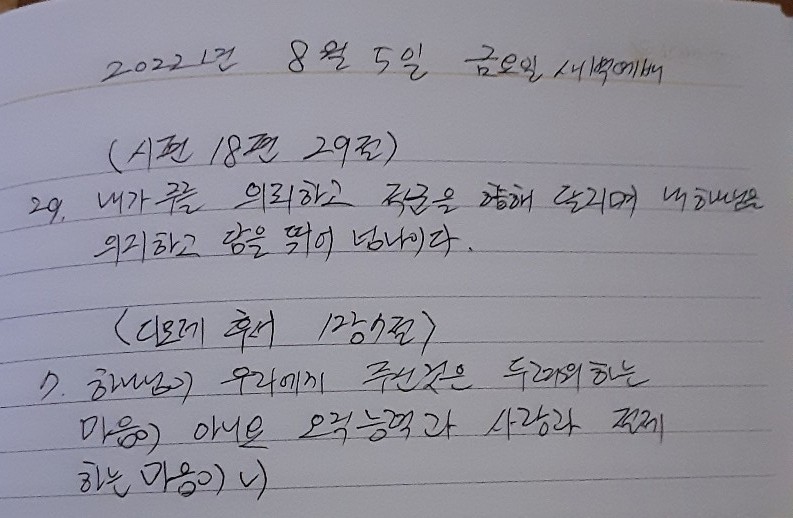 2022년 8월 5일 금요일 새벽예배
(시편 18편 29절)
29. 내가 주를 의뢰하고 적군을 향해 달리며 내 하나님을
의지하고 담을 뛰어 넘나이다.
(디모데 후서 1장 7절)
7. 하나님이 우리에게 주신것은 두려워하는
마음이 아니요 오직 능력과 사랑과 절제
하는 마음이니